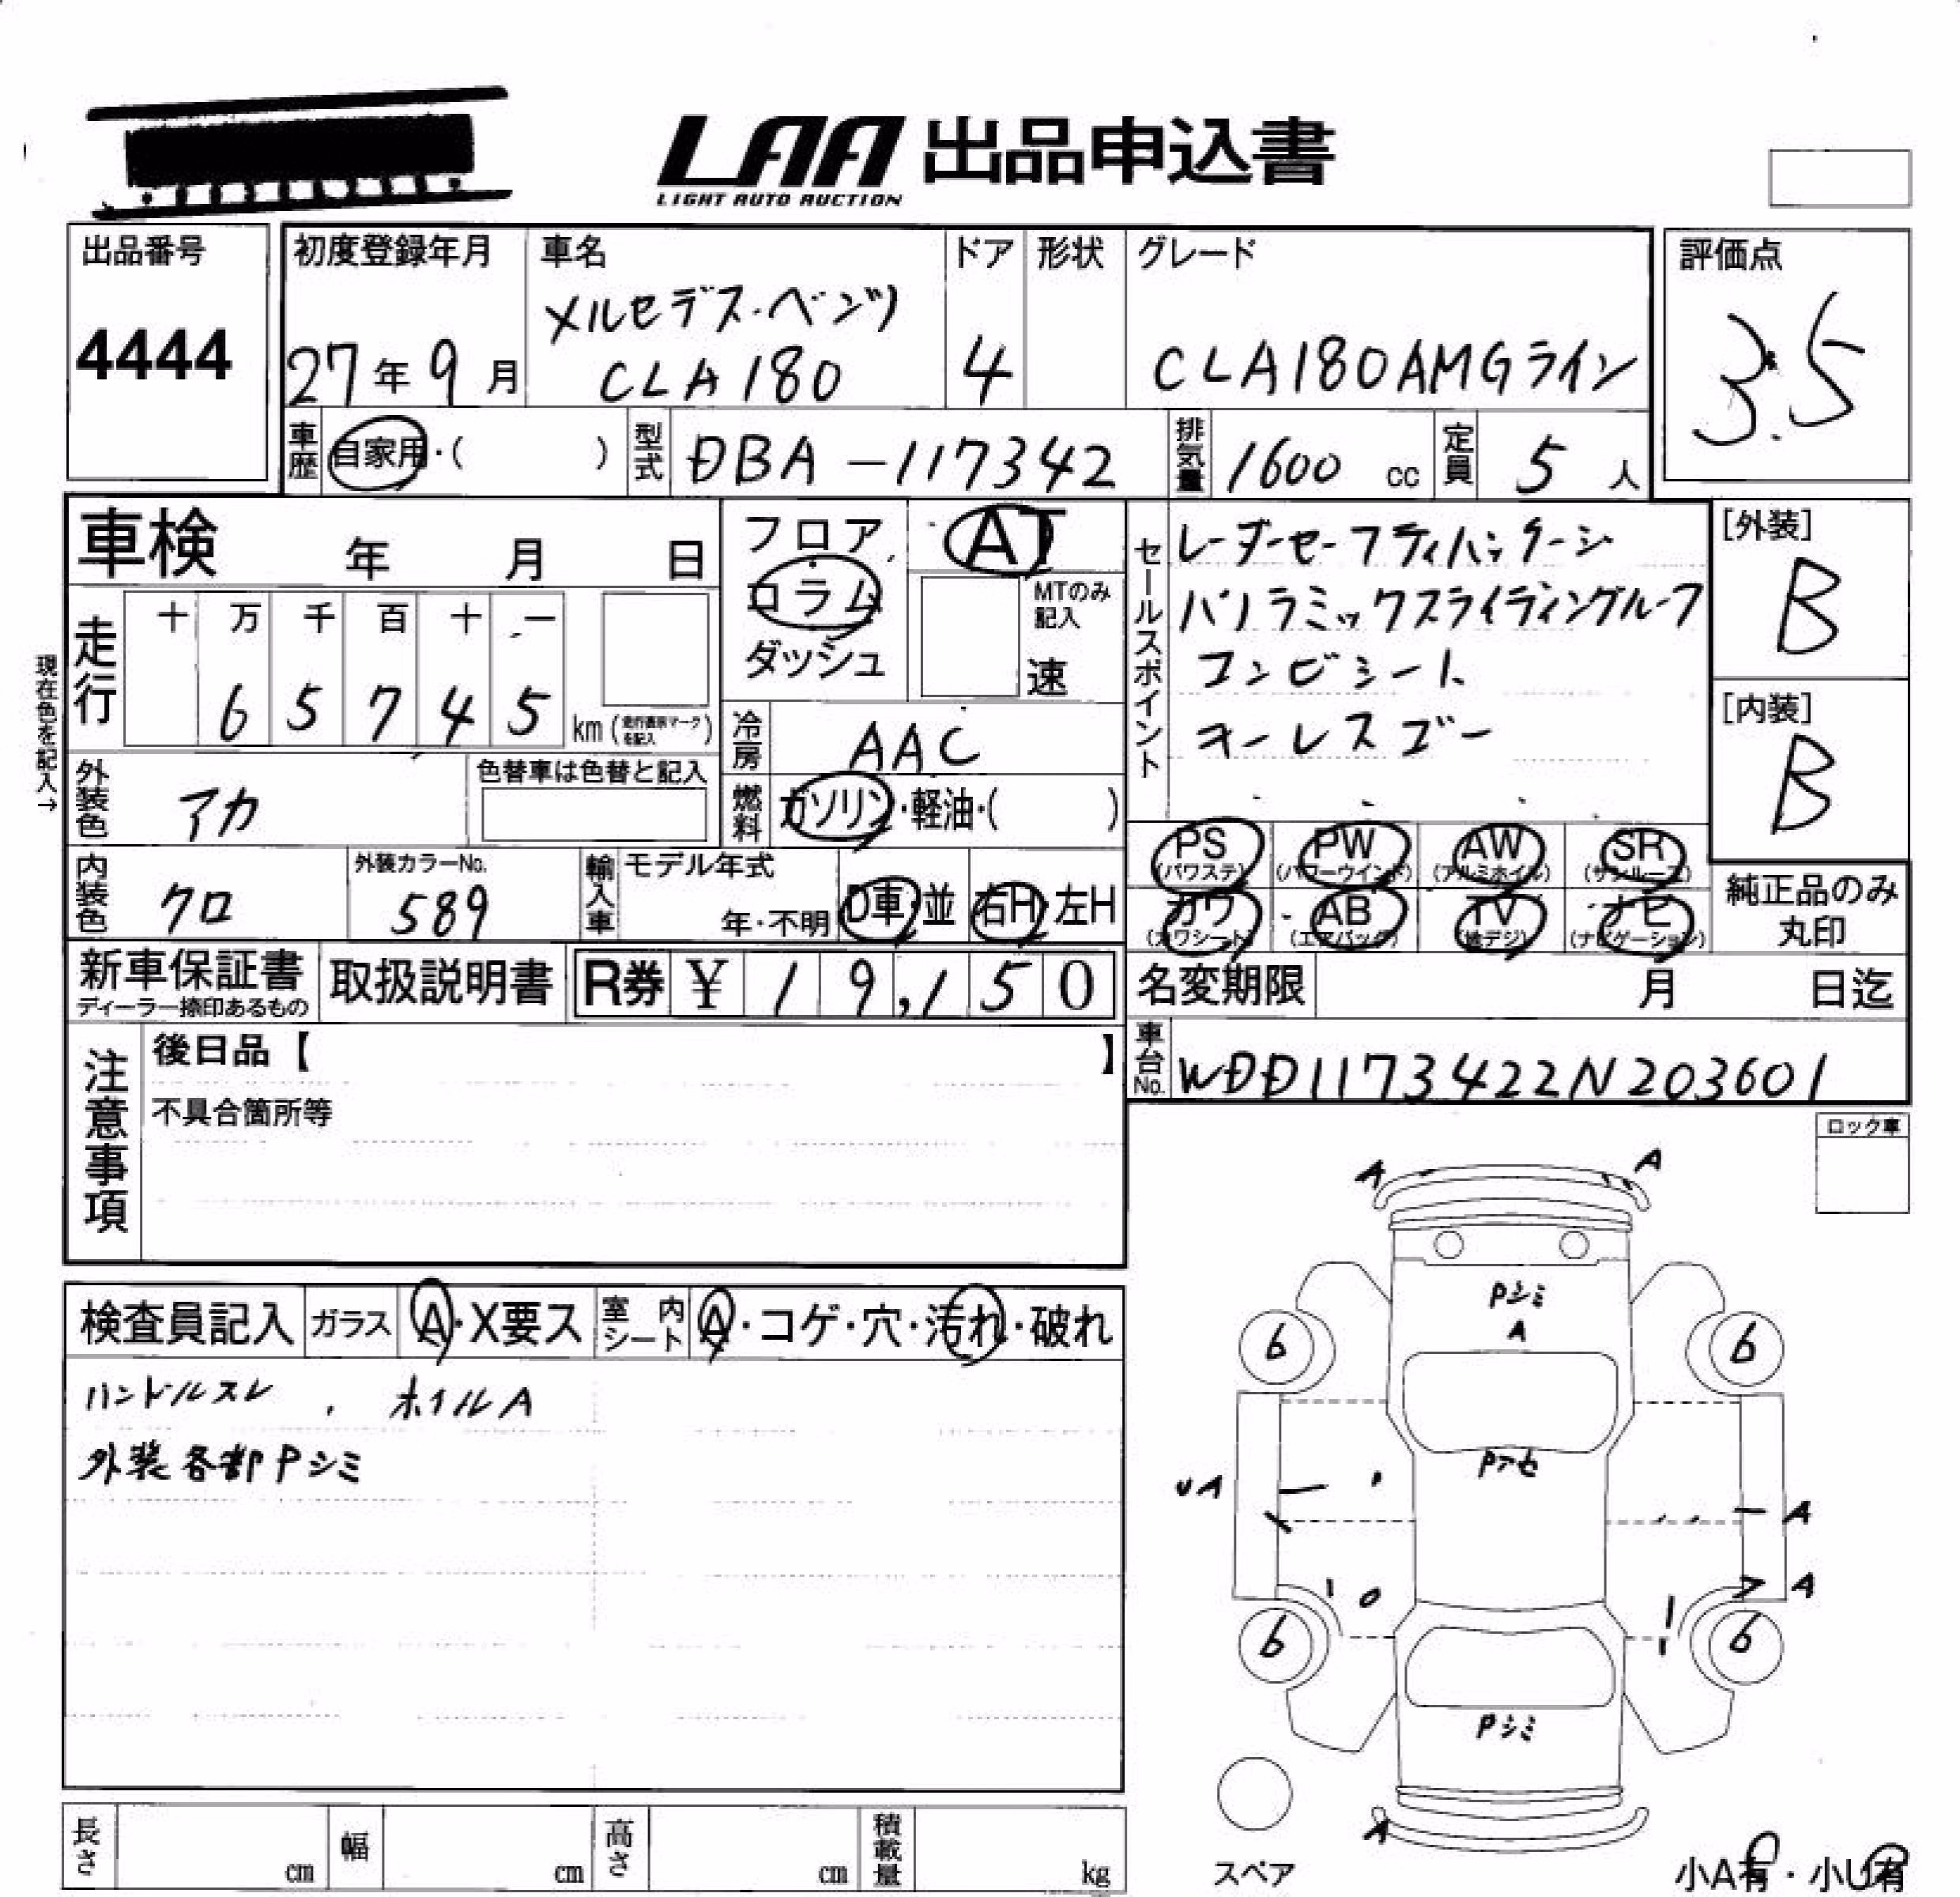 LAA 出品申込書
LIGHT AUTO AUCTION
出品番号
4444
初度登録年月
27年9月
車名
メルセデス・ベンツ
CLA180
ドア
4
形状
グレード
CLA180AMGライン
評価点
3.5
車歴 自家用・( )
型式 DBA-117342
排気量 1600 cc
定員 5 人
車検 年 月 日
走行
十 万 千 百 十 一
6 5 7 4 5
km (走行表示マークを記入)
現在色を記入→
外装色 アカ
色替車は色替と記入
内装色 クロ
外装カラーNo.
589
フロア
コラム
ダッシュ
AT
MTのみ記入
速
冷房 AAC
燃料 ガソリン・軽油・( )
輸入車
モデル年式
年・不明
D車・並
右H・左H
セールスポイント
レーダーセーフティパッケージ
パノラミックスライディングルーフ
コンビシート
キーレスゴー
[外装]
B
[内装]
B
PS (パワステ)
PW (パワーウインド)
AW (アルミホイル)
SR (サンルーフ)
カワ (カワシート)
AB (エアバッグ)
TV (地デジ)
ナビ (ナビゲーション)
純正品のみ丸印
新車保証書
ディーラー捺印あるもの
取扱説明書
R券 ¥ 19,150
名変期限 月 日迄
車台No. WDD1173422N203601
注意事項
後日品【 】
不具合箇所等
ロック車
検査員記入
ガラス A・X要ス
室内シート A・コゲ・穴・汚れ・破れ
ハンドルスレ , ホイルA
外装各部Pシミ
A A
Pシミ
A
6 6
Pアセ
UA
A
A
6 6
Pシミ
A
スペア
小A有・小U有
長さ cm
幅 cm
高さ cm
積載量 kg